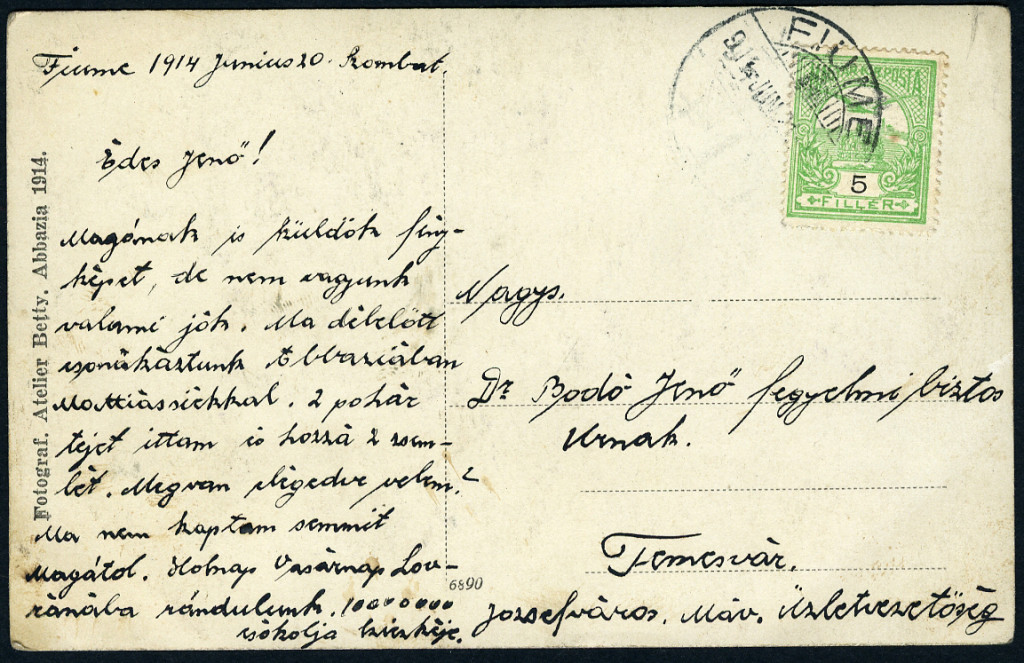 Fiume 1914 Junius 20. Szombat.
Édes Jenő!
Magának is küldök fény-
képet, de nem vagyunk
valami jók. Ma délelőtt
csónukáztunk Abbaziában
Mattiassickkal. 2 pohár
tejet ittam és hozzá 2 zsem-
lét. Megvan elégedve velem?
Ma nem kaptam semmit
Magától. Holnap Vasárnap Lov-
ránába rándulunk. 10000000
csókolja
Fotograf. Atelier Betty, Abbazia 1914.
6890
FIUME
914 JUN
POSTA
5
FILLÉR
Nagys.
Dr Bodó Jenő fegyelmi biztos
Urnak.
Temesvár.
Józsefváros. Máv. Üzletvezetőség